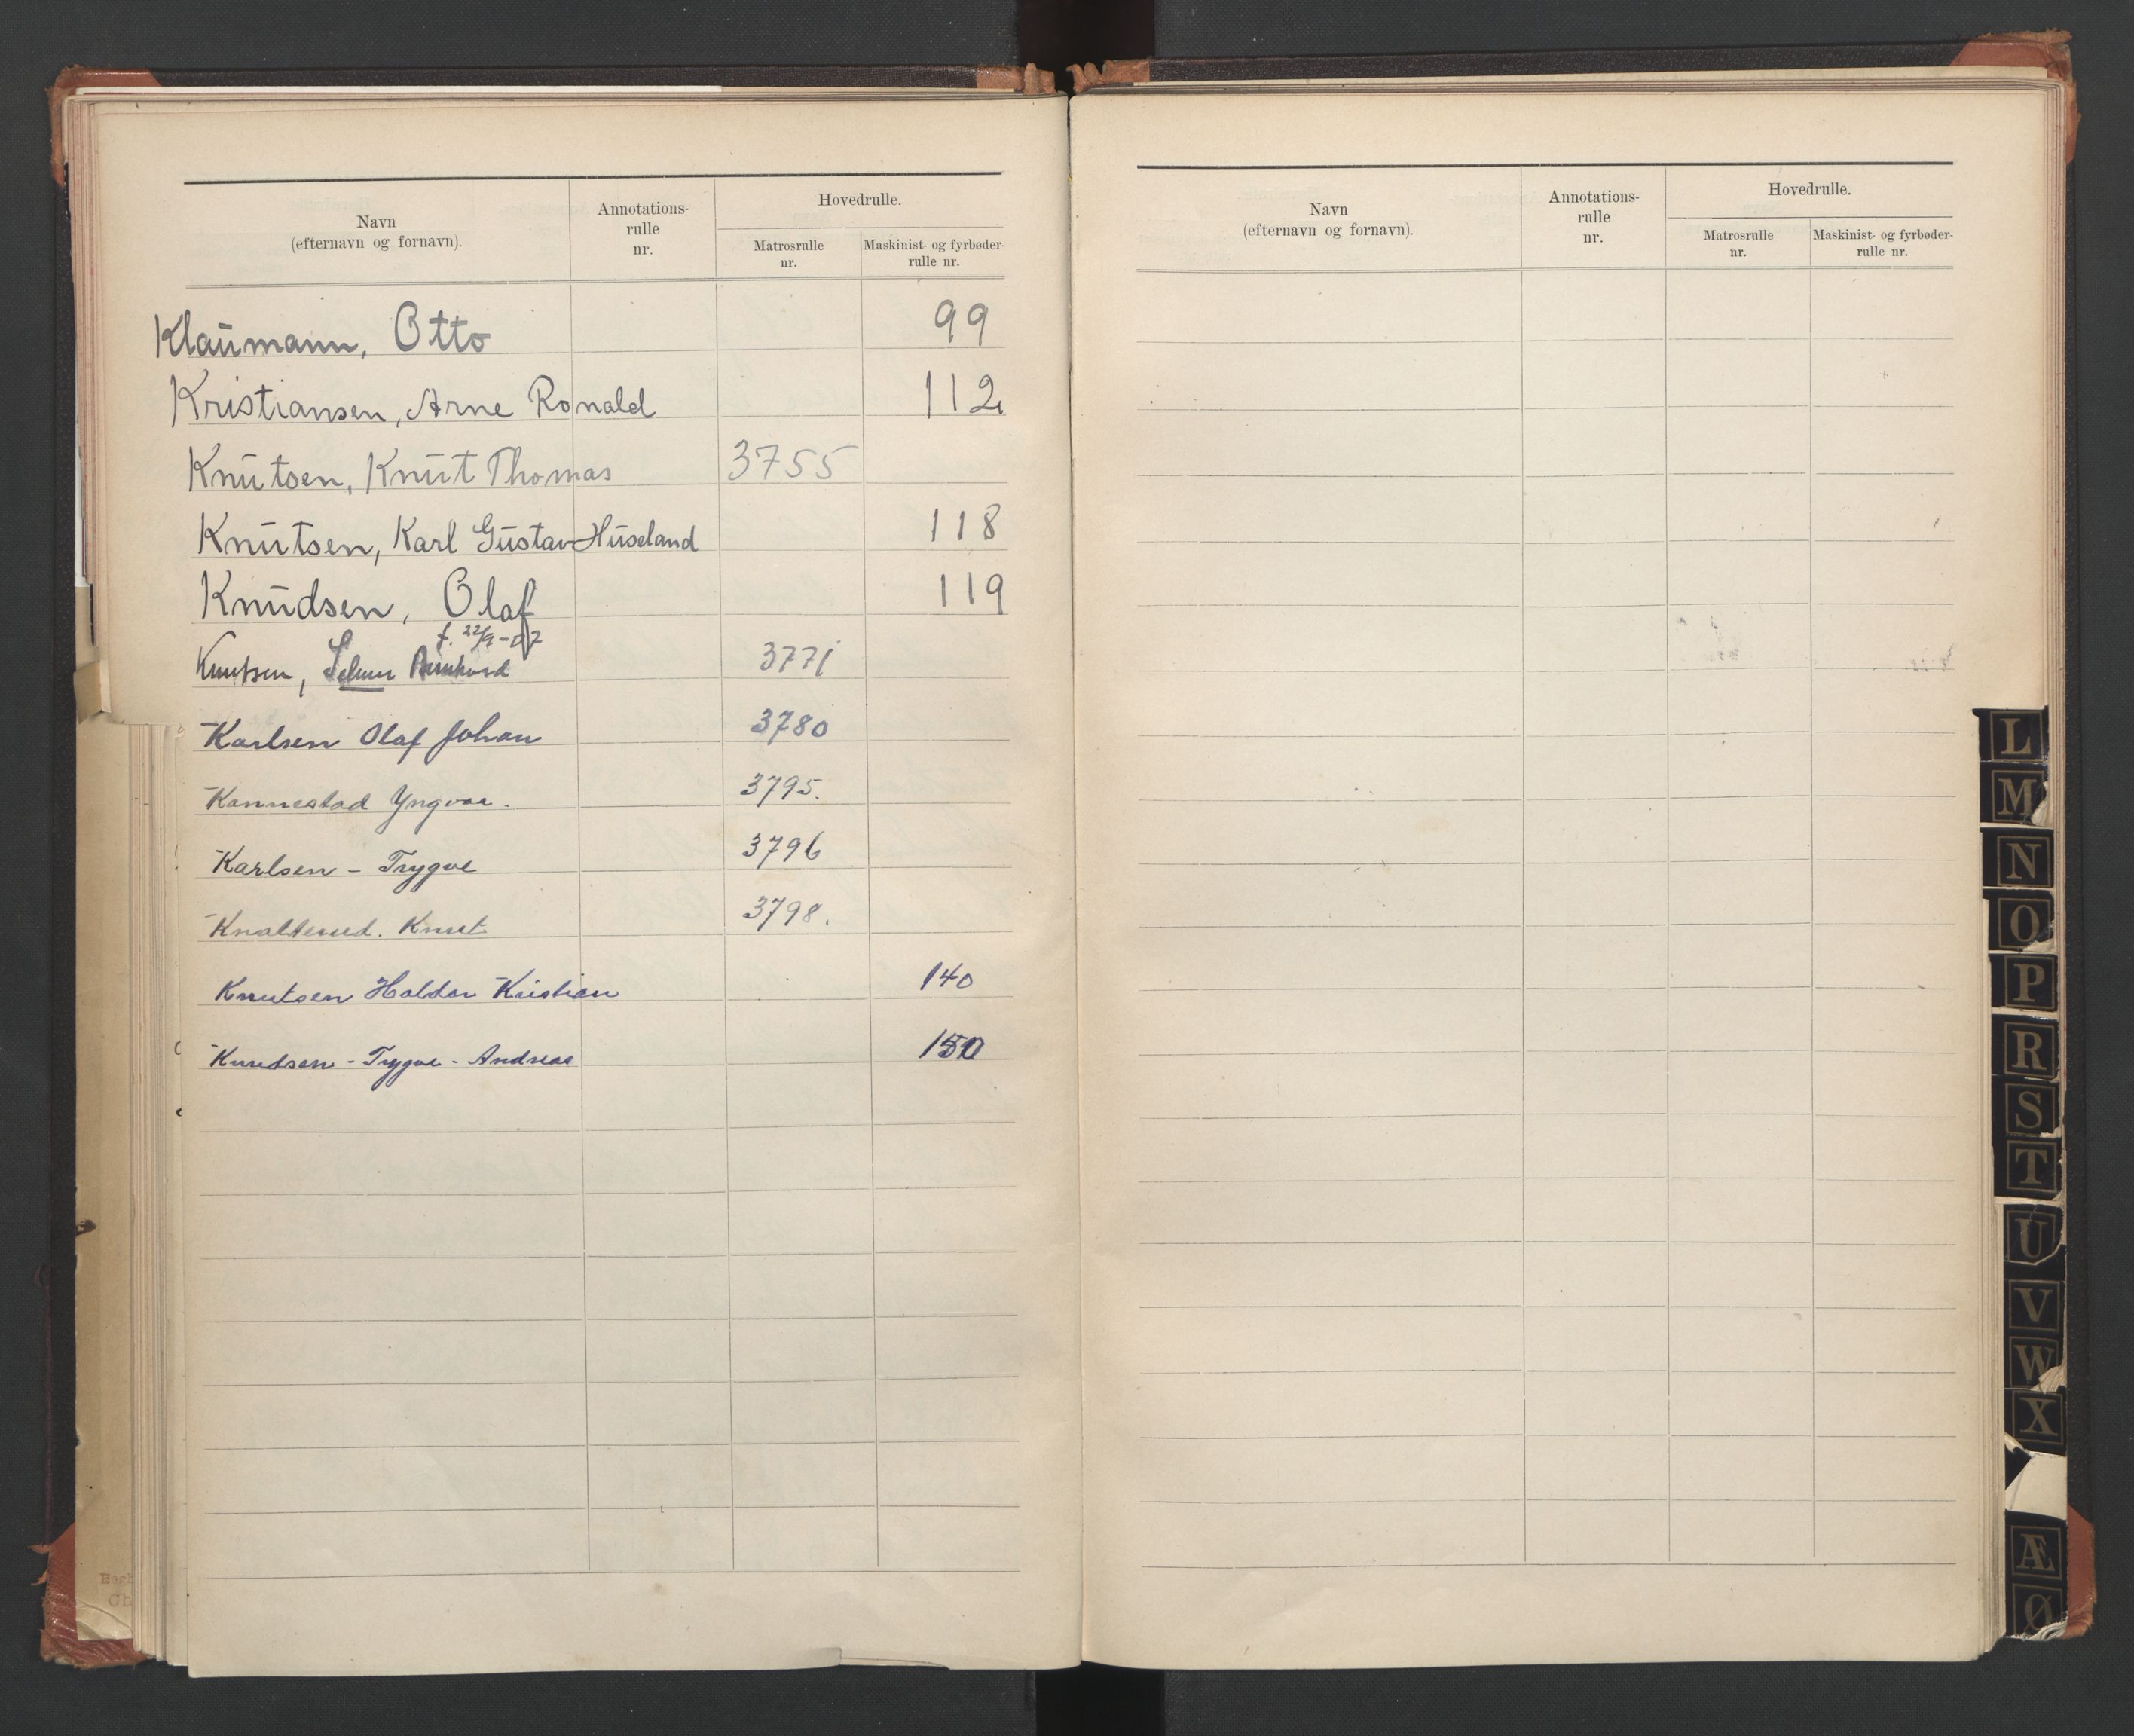 Navn
(efternavn og fornavn).
Annotations-
rulle
nr.
Hovedrulle.
Matrosrulle
nr.
Maskinist- og fyrbøder-
rulle nr.
Klaumann, Otto 99
Kristiansen, Arne Ronald 112
Knutsen, Knut Thomas 3755
Knutsen, Karl Gustav Huseland 118
Knudsen, Olaf 119
f. 22/9-07
Knutsen, Selmer Bernhard 3771
Karlsen Olaf Johan 3780
Kannestad Yngvar. 3795.
Karlsen - Trygve 3796
Knalterud. Knut 3798.
Knutsen Haldor Kristian 140
Knudsen - Trygve - Andreas 150
Navn
(efternavn og fornavn).
Annotations-
rulle
nr.
Hovedrulle.
Matrosrulle
nr.
Maskinist- og fyrbøder-
rulle nr.
L
M
N
O
P
R
S
T
U
V
W
X
Æ
Ø